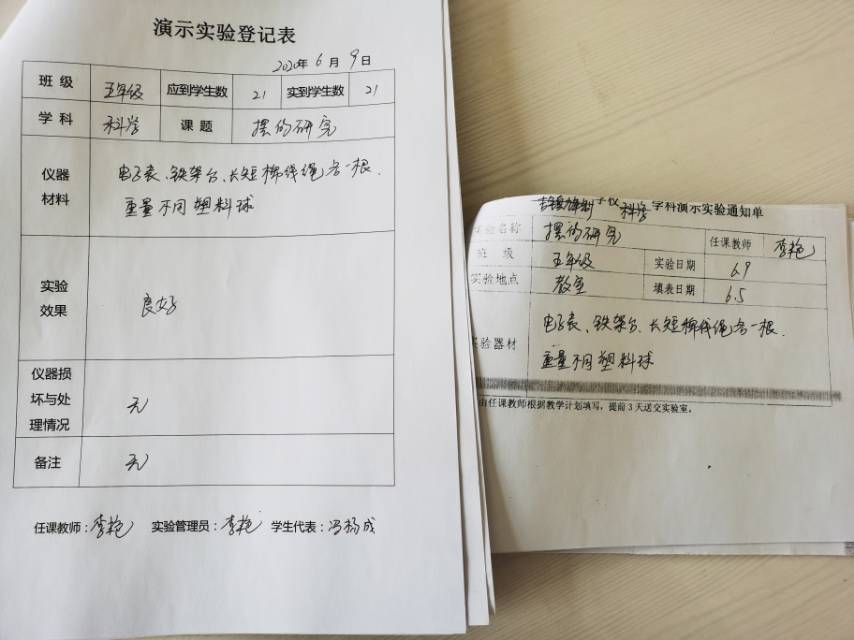 演示实验登记表
2020年 6 月 9 日
班 级 五年级 应到学生数 21 实到学生数 21
学 科 科学 课 题 摆的研究
仪器材料 电子表、铁架台、长短棉线绳各一根、
重量不同塑料球
实验效果 良好
仪器损坏与处理情况 无
备注 无
任课教师：李艳 实验管理员：李艳 学生代表：冯杨成
科学 学科演示实验通知单
实验名称 摆的研究 任课教师 李艳
班 级 五年级 实验日期 6.9
实验地点 教室 填表日期 6.5
实验器材 电子表、铁架台、长短棉线绳各一根、
重量不同塑料球
由任课教师根据教学计划填写，提前 3 天送交实验室。